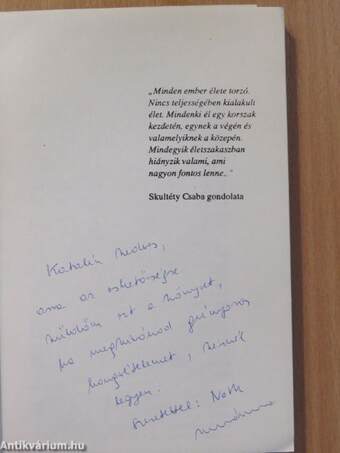 „Minden ember élete torzó.
Nincs teljességében kialakult
élet. Mindenki él egy korszak
kezdetén, egynek a végén és
valamelyiknek a közepén.
Mindegyik életszakaszban
hiányzik valami, ami
nagyon fontos lenne.."
Skultéty Csaba gondolata
Katalin kedves,
arra az eshetőségre
küldöm ezt a könyvet,
ha megkívánod
legyen.
Szeretettel:
Antikvárium.hu